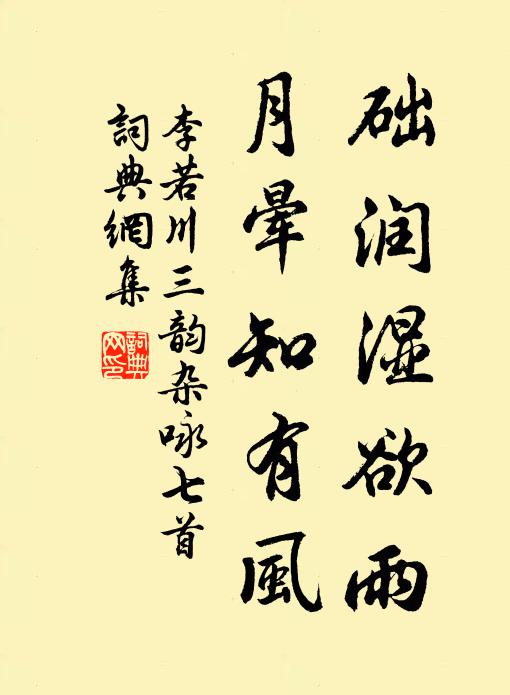 础润湿欲雨
月晕知有風
李若川三韵杂咏七首
詞典網集
詞典网印